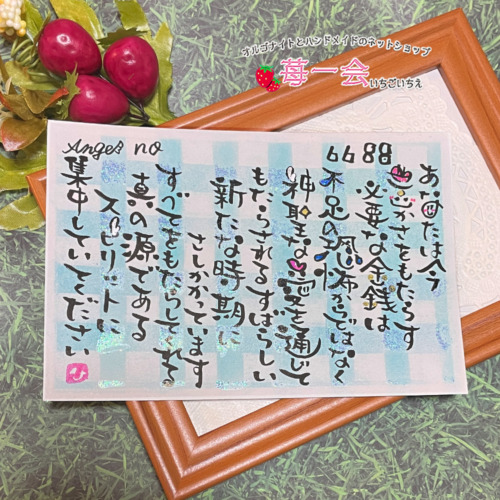 オルゴナイトとハンドメイドのネットショップ
苺一会
いちごいちえ
Angel no
6688
あなたは今
ゆたかさをもたらす
必要な金銭は
不足の恐怖からではなく
神聖な愛を通じて
もたらされるすばらしい
新たな時期に
さしかかっています
すべてをもたらしてくれる
真の源である
スピリットに
集中していてください